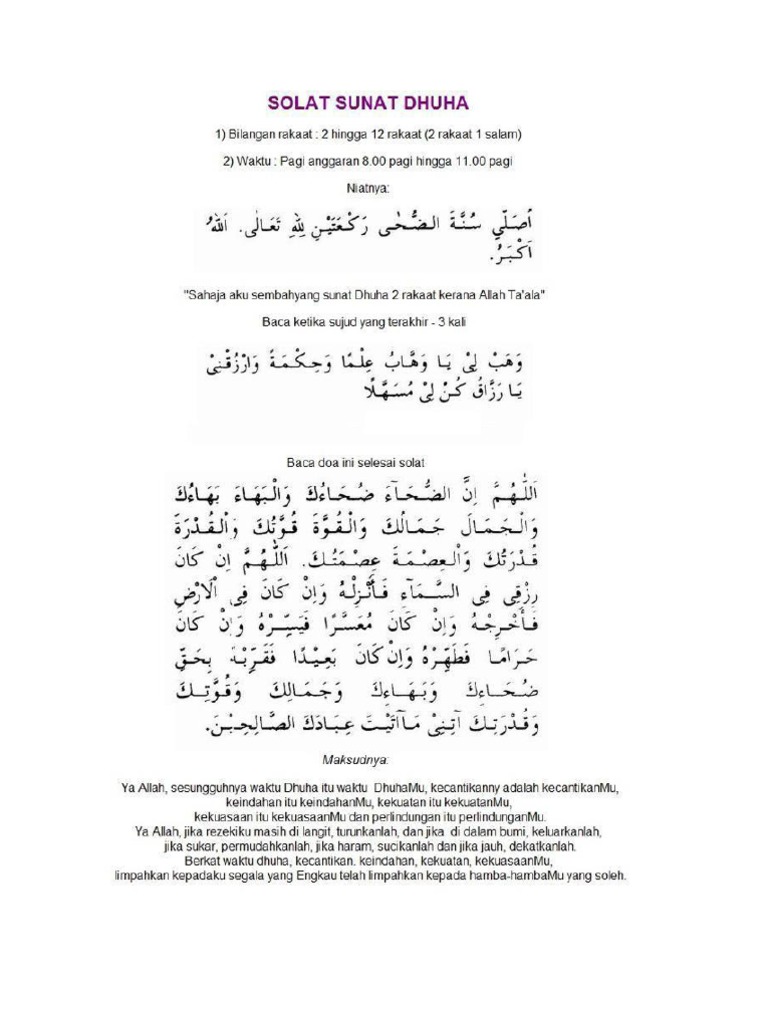 SOLAT SUNAT DHUHA
1) Bilangan rakaat : 2 hingga 12 rakaat (2 rakaat 1 salam)
2) Waktu : Pagi anggaran 8.00 pagi hingga 11.00 pagi
Niatnya:
اُصَلِّي سُنَّةَ الضُّحٰى رَكْعَتَيْنِ لِلّٰهِ تَعَالٰى. اَللّٰهُ
اَكْبَرُ.
"Sahaja aku sembahyang sunat Dhuha 2 rakaat kerana Allah Ta'ala"
Baca ketika sujud yang terakhir - 3 kali
وَهَبْ لِيْ يَا وَهَّابُ عِلْمًا وَحِكْمَةً وَارْزُقْنِيْ
يَا رَزَّاقُ كُنْ لِيْ مُسَهِّلًا
Baca doa ini selesai solat
اَللّٰهُمَّ اِنَّ الضُّحَآءَ ضُحَاءُكَ وَالْبَهَاءَ بَهَاءُكَ
وَالْجَمَالَ جَمَالُكَ وَالْقُوَّةَ قُوَّتُكَ وَالْقُدْرَةَ
قُدْرَتُكَ وَالْعِصْمَةَ عِصْمَتُكَ. اَللّٰهُمَّ اِنْ كَانَ
رِزْقِى فِى السَّمَآءِ فَأَنْزِلْهُ وَاِنْ كَانَ فِى اْلاَرْضِ
فَأَخْرِجْهُ وَاِنْ كَانَ مُعَسَّرًا فَيَسِّرْهُ وَاِنْ كَانَ
حَرَامًا فَطَهِّرْهُ وَاِنْ كَانَ بَعِيْدًا فَقَرِّبْهُ بِحَقِّ
ضُحَاءِكَ وَبَهَاءِكَ وَجَمَالِكَ وَقُوَّتِكَ
وَقُدْرَتِكَ آتِنِىْ مَآاَتَيْتَ عِبَادَكَ الصَّالِحِيْنَ.
Maksudnya:
Ya Allah, sesungguhnya waktu Dhuha itu waktu DhuhaMu, kecantikanny adalah kecantikanMu,
keindahan itu keindahanMu, kekuatan itu kekuatanMu,
kekuasaan itu kekuasaanMu dan perlindungan itu perlindunganMu.
Ya Allah, jika rezekiku masih di langit, turunkanlah, dan jika di dalam bumi, keluarkanlah,
jika sukar, permudahkanlah, jika haram, sucikanlah dan jika jauh, dekatkanlah.
Berkat waktu dhuha, kecantikan. keindahan, kekuatan, kekuasaanMu,
limpahkan kepadaku segala yang Engkau telah limpahkan kepada hamba-hambaMu yang soleh.